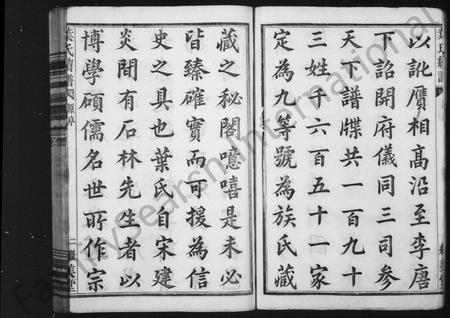 以訛贋相高沿至李唐
下詔開府儀同三司參
天下譜牒共一百九十
三姓千六百五十一家
定為九等號為族氏藏
藏之秘閣噫嘻是未必
皆臻確實而可援為信
史之具也葉氏自宋建
炎間有石林先生者以
博學碩儒名世所作宗